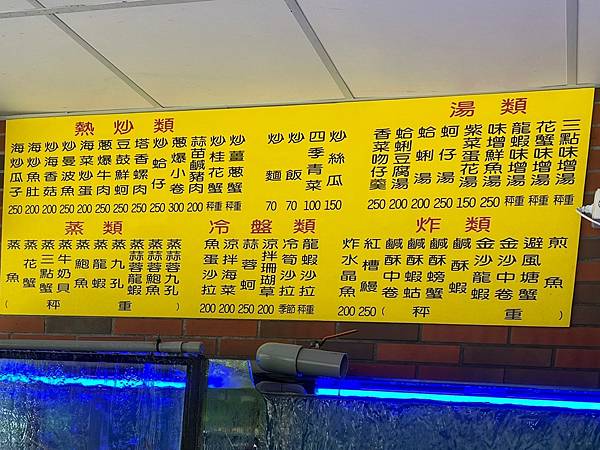 熱炒類
海炒瓜子 250
海炒魚肚 200
炒海香菇 250
炒曼波魚 250
海菜炒蛋 200
蔥爆牛肉 250
豆鼓鮮蚵 250
塔香螺肉 250
炒蛤仔 250
蔥爆小卷 300
蒜苗鹹豬肉 200
炒桂花蟹 秤重
炒薑蔥蟹 秤重
炒麵 70
炒飯 70
四季青菜 100
炒絲瓜 150
湯類
香菜吻仔羹 250
蛤蜊豆腐湯 200
蛤蜊湯 200
蚵仔湯 250
紫菜蛋花湯 150
味增鮮魚湯 250
龍蝦味增湯 秤重
花蟹味增湯 秤重
三點味增湯 秤重
蒸類
蒸魚
蒸花蟹
蒸三點蟹
蒸牛奶貝
蒸龍蝦
蒸鮑魚
蒸九孔
蒸蒜蓉龍蝦
蒸蒜蓉鮑魚
蒸蒜蓉九孔
(秤重)
冷盤類
魚蛋沙拉 200
涼拌海菜 200
蒜蓉蚵 250
涼拌珊瑚草 200
冷筍沙拉 季節
龍蝦沙拉 秤重
炸類
炸水晶魚 200
紅糟鰻 250
鹹酥中卷
鹹酥蝦蛄
鹹酥螃蟹
鹹酥蝦
金沙龍蝦
金沙中卷
避風塘蟹
煎魚
(秤重)